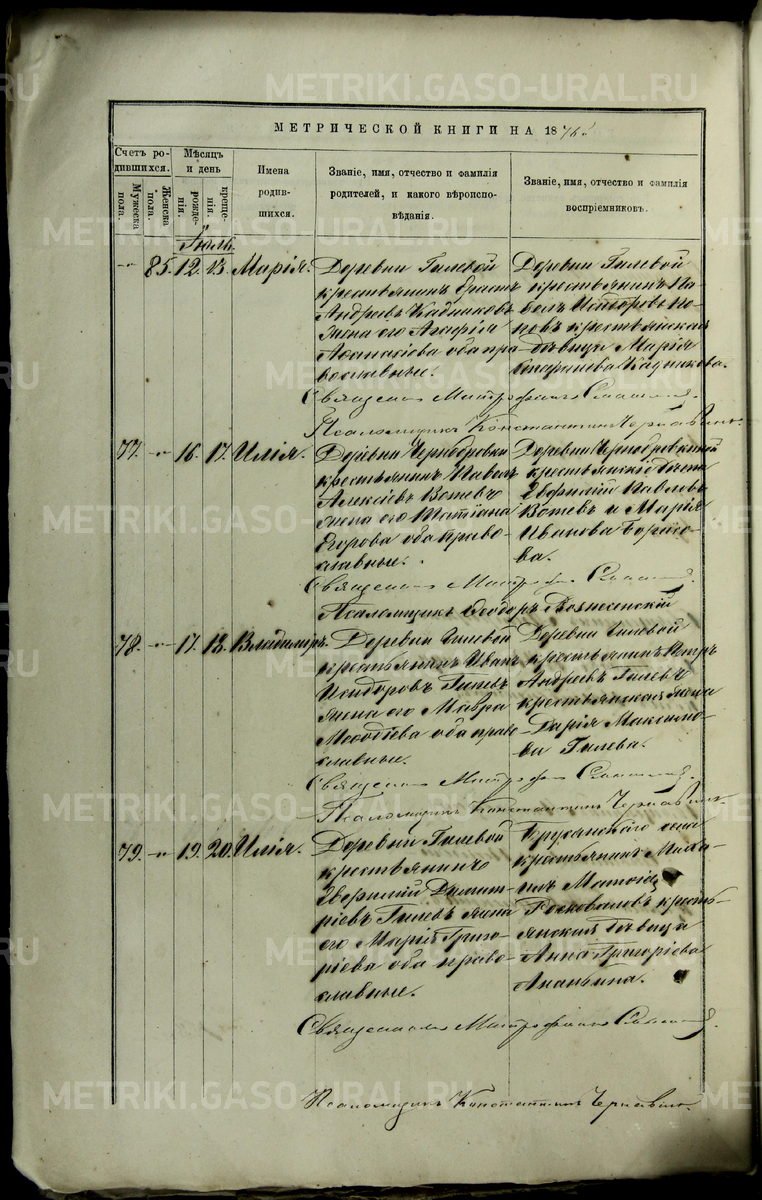 METRIKI.GASO-URAL.RU
МЕТРИЧЕСКОЙ КНИГИ НА 1876
Счетъ ро-
дившихся.
Мужеска
пола.
Женска
пола.
Мѣсяцъ
и день
рожде-
нія.
креще-
нія.
Имена
родив-
шихся.
Званіе, имя, отчество и фамилія
родителей, и какого вѣроиспо-
вѣданія.
Званіе, имя, отчество и фамилія
воспріемниковъ.
Іюль
85. 12. 13. Марія.
Деревни Гилевой
крестьянинъ
Андреевъ Кадниковъ
жена его Агафія
Аѳанасіева оба пра-
вославные.
Деревни Гилевой
крестьянинъ Па-
велъ Исидоровъ По-
повъ крестьянская
дѣвица Марія
Кадникова.
Священникъ Митрофанъ
Псаломщикъ Константинъ Чернавинъ
77. 16. 17. Илія.
Деревни Чернобровки
крестьянинъ Павелъ
Алексіевъ Вотевъ
жена его Татіана
Егорова оба право-
славные.
Деревни Чернобровкиной
крестьянскія дѣти
Евфимій Павловъ
Вотевъ и Марія
Иванова Борисо-
ва.
Священникъ Митроф.
Псаломщикъ Ѳеодоръ Вознесенскій
78. 17. 18. Владиміръ.
Деревни Гилевой
крестьянинъ Иванъ
Исидоровъ Гилевъ
жена его Мавра
Меѳодіева оба право-
славные.
Деревни Гилевой
крестьянинъ Петръ
Андреевъ Гилевъ
крестьянская жена
Дарія Максимо-
ва Гилева.
Священникъ Митроф.
Псаломщикъ Константинъ Чернавинъ
79. 19. 20. Илія.
Деревни Гилевой
крестьянинъ
Евфимій Димит-
ріевъ Гилевъ жена
его Марія Григо-
ріева оба право-
славные.
Брусянскаго села
крестьянинъ Миха-
илъ
кресть-
янская дѣвица
Анна Григоріева
Ананьина.
Священникъ Митрофанъ
Псаломщикъ Константинъ Чернавинъ